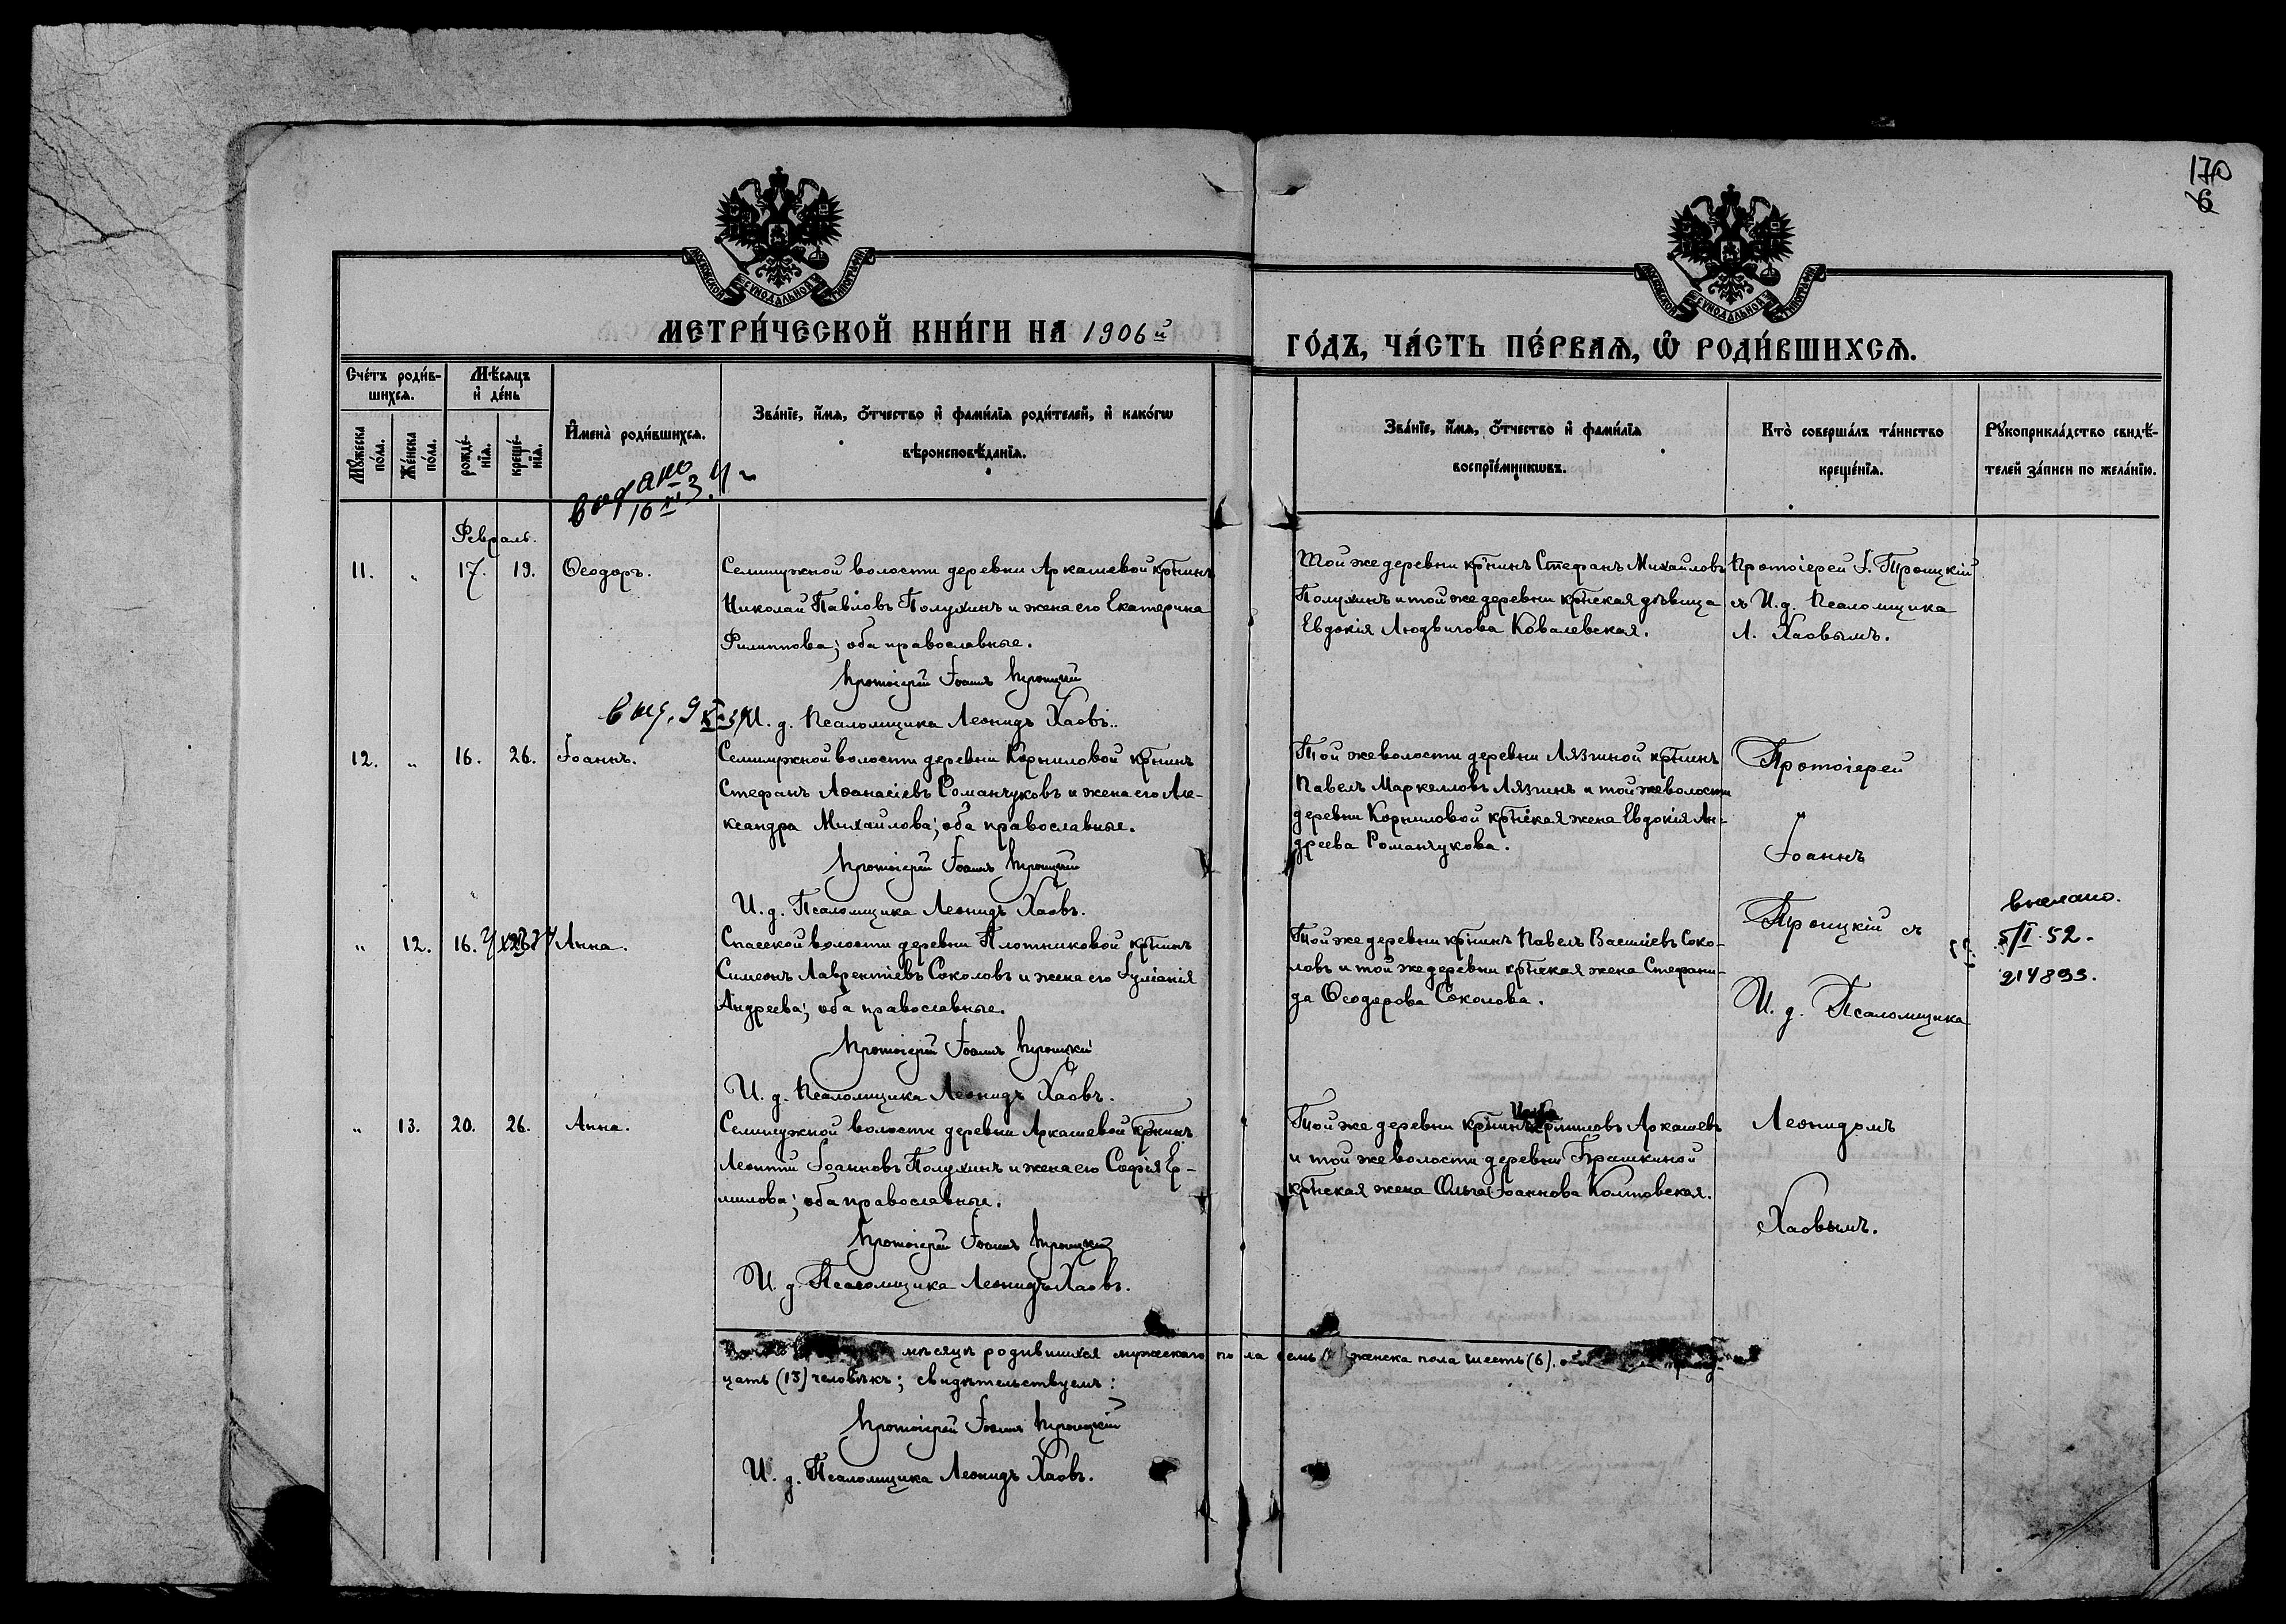 170
6
МОСКОВСКОЙ СѴНОДАЛЬНОЙ ТИПОГРАФІИ
МОСКОВСКОЙ СѴНОДАЛЬНОЙ ТИПОГРАФІИ
МЕТРИ́ЧЕСКОЙ КНИ́ГИ НА 1906й
ГО́ДЪ, ЧА́СТЬ ПЕ́РВАѦ, Ѡ҆ РОДИ́ВШИХСѦ.
Сче́тъ роди́в-
шихсѧ.
Мѣ́сѧцъ
и҆ де́нь
Мꙋ́жеска по́ла.
Же́нска по́ла.
рожде́-
нїѧ.
креще́-
нїѧ.
И҆мена̀ роди́вшихсѧ.
Зва́нїе, и҆́мѧ, ѻ҆́тчество и҆ фами́лїѧ роди́телей, и҆ како́гѡ
вѣроисповѣ́данїѧ.
Зва́нїе, и҆́мѧ, ѻ҆́тчество и҆ фами́лїѧ
воспрїе́мникѡвъ.
Кто̀ соверша́лъ та́инство
креще́нїѧ.
Рꙋкоприкла́дство свидѣ́-
телей за́писи по жела́нїю.
Февраль.
11. „ 17. 19. Ѳеодоръ.
Семилужной волости деревни Аркашевой кр҃нинъ
Николай Павловъ Полухинъ и жена его Екатерина
Филиппова; оба православные.
Протоіерей Іоаннъ Троицкій
И. д. Псаломщика Леонидъ Хаовъ.
Той же деревни кр҃нинъ Стефанъ Михайловъ
Полухинъ и той же деревни кр҃нская дѣвица
Евдокія Людвигова Ковалевская.
Протоіерей І. Троицкій
съ И. д. Псаломщика
Л. Хаовымъ.
12. „ 16. 26. Іоаннъ.
Семилужной волости деревни Корниловой кр҃нинъ
Стефанъ Аѳанасіевъ Романчуковъ и жена его Але-
ксандра Михайлова; оба православные.
Протоіерей Іоаннъ Троицкій
И. д. Псаломщика Леонидъ Хаовъ.
Той же волости деревни Лязгиной кр҃нинъ
Павелъ Маркелловъ Лязгинъ и той же волости
деревни Корниловой кр҃нская жена Евдокія Ан-
дреева Романчукова.
Протоіерей
Іоаннъ
Троицкій съ
И. д. Псаломщика
Леонидомъ
Хаовымъ.
„ 12. 16. Анна.
Спасской волости деревни Плотниковой кр҃нинъ
Симеонъ Лаврентіевъ Соколовъ и жена его Іуліанія
Андреева; оба православные.
Протоіерей Іоаннъ Троицкій
И. д. Псаломщика Леонидъ Хаовъ.
Той же деревни кр҃нинъ Павелъ Василіевъ Соко-
ловъ и той же деревни кр҃нская жена Стефани-
да Ѳеодорова Соколова.
5/I 52.
214893.
„ 13. 20. 26. Анна.
Семилужной волости деревни Аркашевой кр҃нинъ
Леонтій Іоанновъ Полухинъ и жена его Софія Ер-
милова; оба православные.
Протоіерей Іоаннъ Троицкій
И. д. Псаломщика Леонидъ Хаовъ.
Той же деревни кр҃нинъ Ермиловъ Аркашевъ
и той же волости деревни
кр҃нская жена Ольга Іоаннова
мѣсяцѣ родившихся мужескаго пола семь женска пола шесть (6).
цать (13) человѣкъ; свидѣтельствуемъ:
Протоіерей Іоаннъ Троицкій
И. д. Псаломщика Леонидъ Хаовъ.